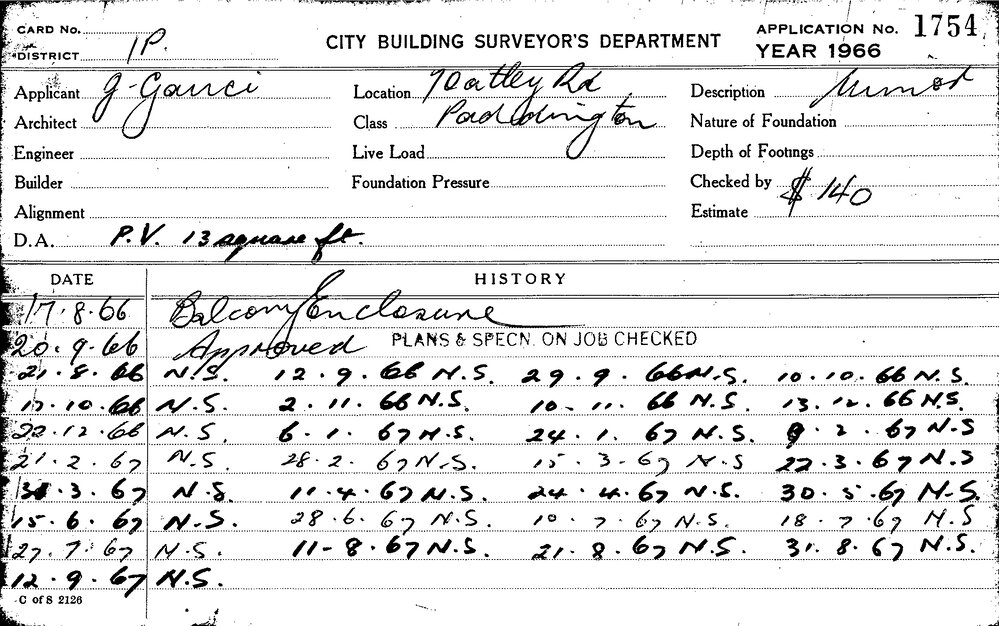 CARD No.
DISTRICT 1P.
CITY BUILDING SURVEYOR'S DEPARTMENT
APPLICATION No. 1754
YEAR 1966
Applicant G. Gauci
Location Oatley Rd
Description Minor
Architect
Class Paddington
Nature of Foundation
Engineer
Live Load
Depth of Footings
Builder
Foundation Pressure
Checked by
Alignment
Estimate $140
D.A. P.V. 13 square ft.
DATE HISTORY
17.8.66 Balcony Enclosure
20.9.66 Approved PLANS & SPECN. ON JOB CHECKED
21.8.66 N.S. 12.9.66 N.S. 29.9.66 N.S. 10.10.66 N.S.
17.10.66 N.S. 2.11.66 N.S. 10.11.66 N.S. 13.12.66 N.S.
22.12.66 N.S. 6.1.67 N.S. 24.1.67 N.S. 9.2.67 N.S
21.2.67 N.S. 28.2.67 N.S. 15.3.67 N.S 22.3.67 N.S
31.3.67 N.S. 11.4.67 N.S. 24.4.67 N.S. 30.5.67 N.S.
15.6.67 N.S. 28.6.67 N.S. 10.7.67 N.S. 18.7.67 N.S
27.7.67 N.S. 11-8.67 N.S. 21.8.67 N.S. 31.8.67 N.S.
12.9.67 N.S.
C of S 2126